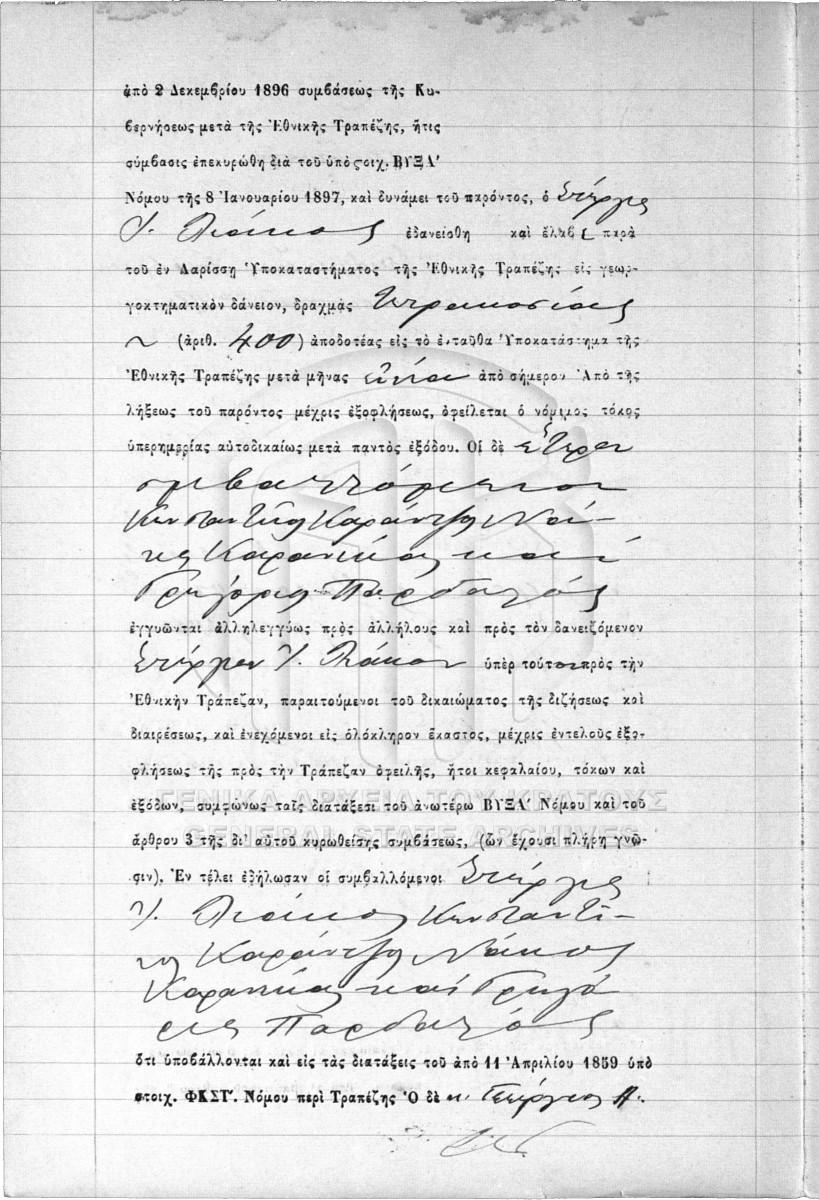 ἀπὸ 2 Δεκεμβρίου 1896 συμβάσεως τῆς Κυ-
βερνήσεως μετὰ τῆς Ἐθνικῆς Τραπέζης, ἥτις
σύμβασις ἐπεκυρώθη διὰ τοῦ ὑπὸ στοιχ. ΒΥΞΑ'
Νόμου τῆς 8 Ἰανουαρίου 1897, καὶ δυνάμει τοῦ παρόντος, ὁ Στέργιος
Ἰ. Λιάκος ἐδανείσθη καὶ ἔλαβε παρὰ
τοῦ ἐν Λαρίσσῃ Ὑποκαταστήματος τῆς Ἐθνικῆς Τραπέζης εἰς γεωρ-
γοκτηματικὸν δάνειον, δραχμὰς Τετρακοσίας
(ἀριθ. 400) ἀποδοτέας εἰς τὸ ἐνταῦθα Ὑποκατάστημα τῆς
Ἐθνικῆς Τραπέζης μετὰ μῆνας ἐννέα ἀπὸ σήμερον Ἀπὸ τῆς
λήξεως τοῦ παρόντος μέχρις ἐξοφλήσεως, ὀφείλεται ὁ νόμιμος τόκος
ὑπερημερίας αὐτοδικαίως μετὰ παντὸς ἐξόδου. Οἱ δὲ ἕτεροι
συμβαλλόμενοι
Κωνσταντῖνος Καράντζος Νά-
κος Καρανίκας καὶ
Γρηγόριος Παρδαλός
ἐγγυῶνται ἀλληλεγγύως πρὸς ἀλλήλους καὶ πρὸς τὸν δανειζόμενον
Στέργιον Ἰ. Λιάκον ὑπὲρ τούτου πρὸς τὴν
Ἐθνικὴν Τράπεζαν, παραιτούμενοι τοῦ δικαιώματος τῆς διζήσεως καὶ
διαιρέσεως, καὶ ἐνεχόμενοι εἰς ὁλόκληρον ἕκαστος, μέχρις ἐντελοῦς ἐξο-
φλήσεως τῆς πρὸς τὴν Τράπεζαν ὀφειλῆς, ἤτοι κεφαλαίου, τόκων καὶ
ΓΕΝΙΚΑ ΑΡΧΕΙΑ ΤΟΥ ΚΡΑΤΟΥΣ
ἐξόδων, συμφώνως ταῖς διατάξεσι τοῦ ἀνωτέρω ΒΥΞΑ' Νόμου καὶ τοῦ
GENERAL STATE ARCHIVES
ἄρθρου 3 τῆς δι' αὐτοῦ κυρωθείσης συμβάσεως, (ὧν ἔχουσι πλήρη γνῶ-
σιν). Ἐν τέλει ἐδήλωσαν οἱ συμβαλλόμενοι Στέργιος
Ἰ. Λιάκος Κωνσταντῖ-
νος Καράντζος Νάκος
Καρανίκας καὶ Γρηγό
ριος Παρδαλός
ὅτι ὑποβάλλονται καὶ εἰς τὰς διατάξεις τοῦ ἀπὸ 11 Ἀπριλίου 1859 ὑπὸ
στοιχ. ΦΚΣΤ'. Νόμου περὶ Τραπέζης Ὁ δὲ κ. Γεώργιος Α.